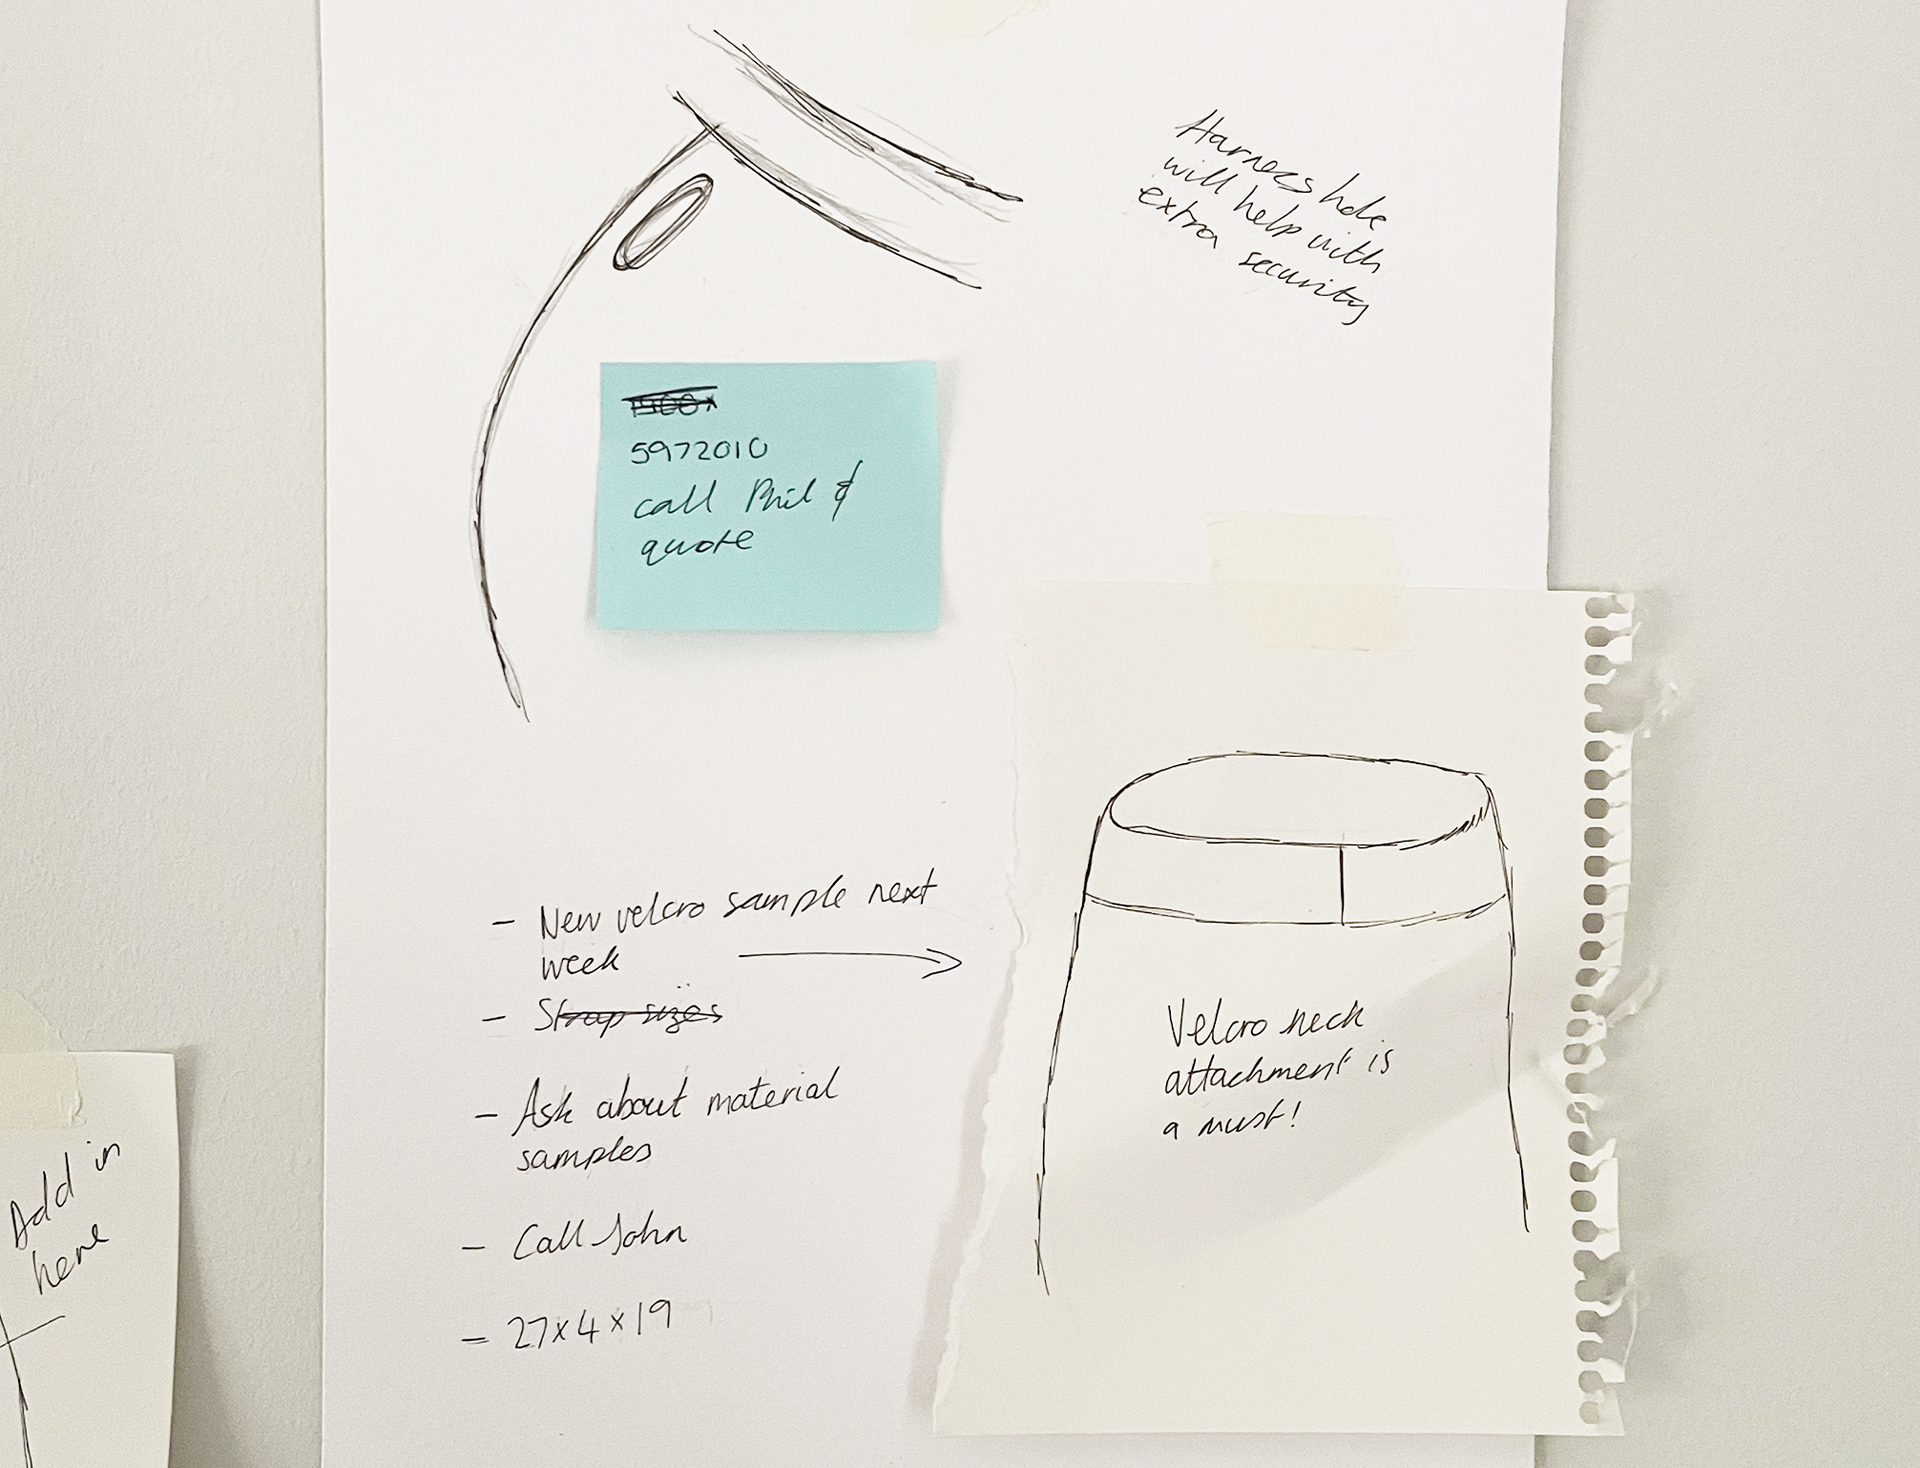 Harness hole
will help with
extra security
5972010
call Phil &
quote
- New velcro sample next
week
- Strap sizes
- Ask about material
samples
- Call John
- 27x4x19
Velcro neck
attachment is
a must!
Add in
here